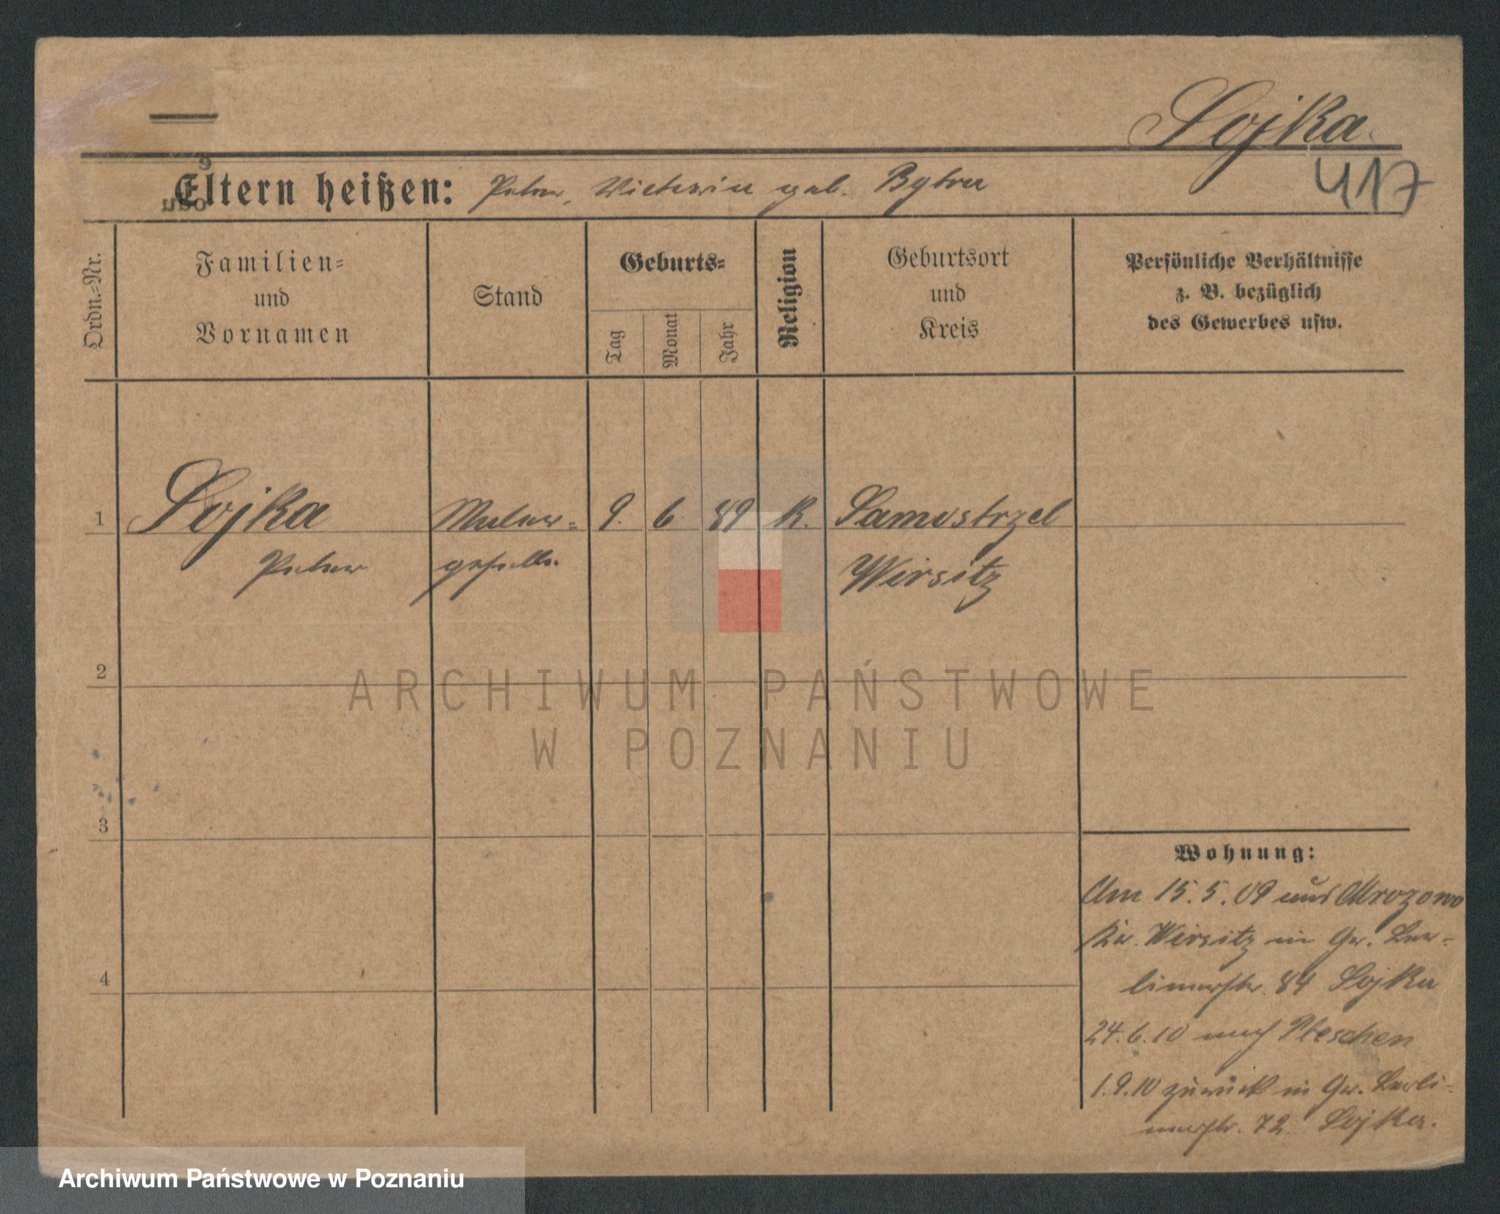 Sojka.
417
Eltern heißen: Peter, Victoria geb. Bytra
Ordn.-Nr.
Familien-
und
Vornamen
Stand
Geburts-
Tag
Monat
Jahr
Religion
Geburtsort
und
Kreis
Persönliche Verhältnisse
z. B. bezüglich
des Gewerbes usw.
1 Sojka Maler- 9. 6 89 K. Samostrzel
Peter geselle. Wirsitz
2
3
4
Wohnung:
Am 15.5.09 aus Mrozowo
Kr. Wirsitz in Gr. Ber-
linerstr. 84 Sojka
24.6.10 nach Pleschen
1.9.10 zurück in Gr. Berli-
nerstr. 72. Sojka.
ARCHIWUM PAŃSTWOWE
W POZNANIU
Archiwum Państwowe w Poznaniu